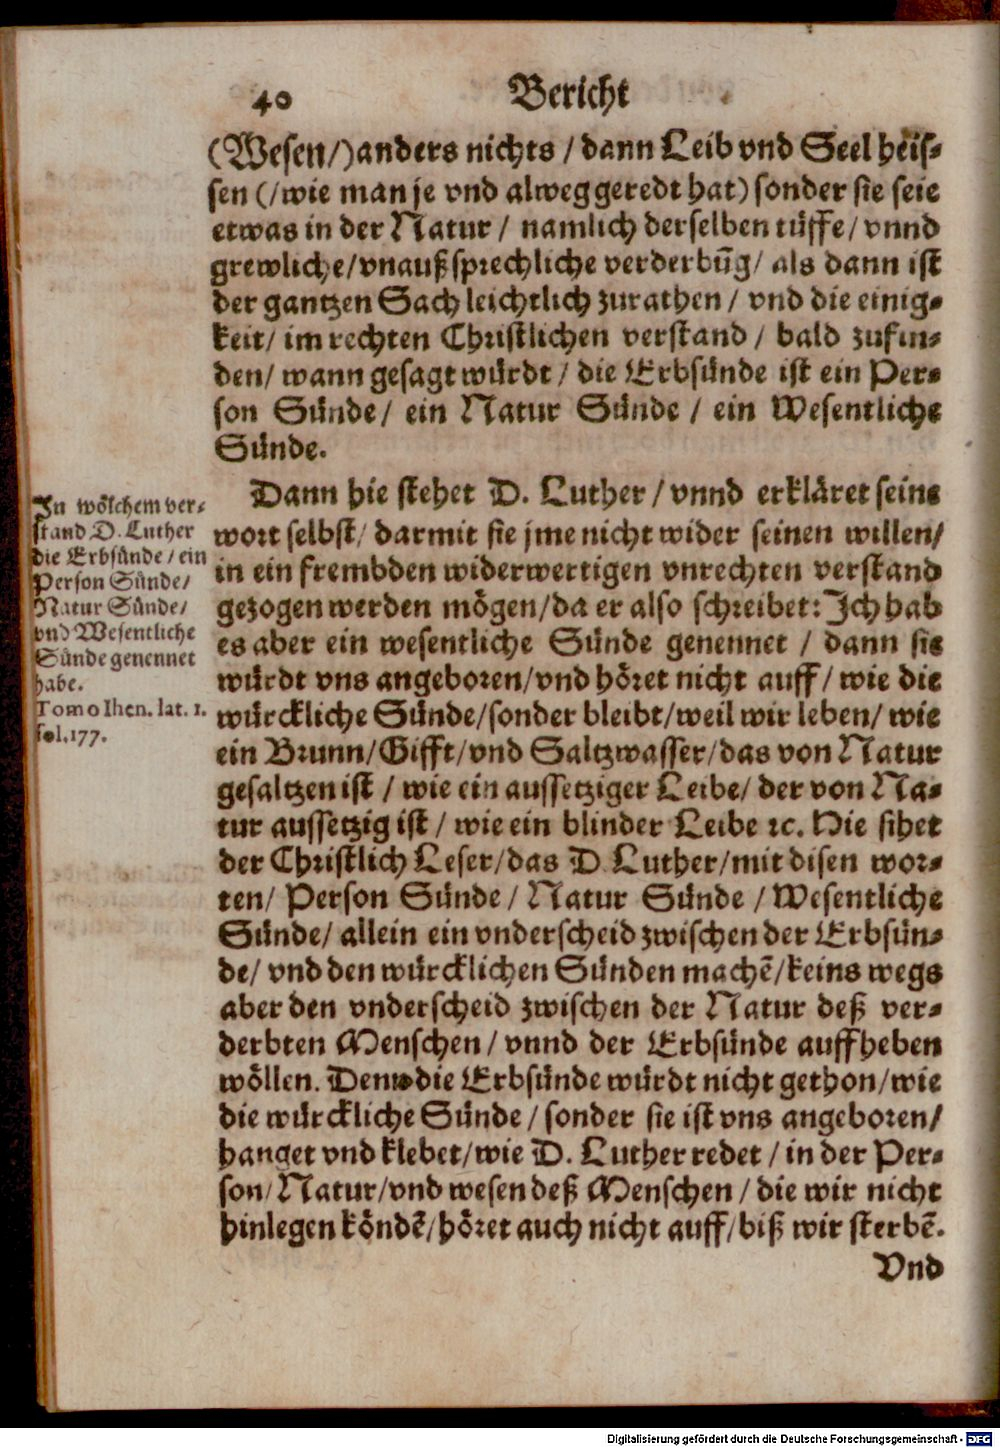 40 Bericht
(Wesen/) anders nichts / dann Leib vnd Seel heis-
sen (/wie man je vnd alweg geredt hat) sonder sie seie
etwas in der Natur / namlich derselben tüffe/ vnnd
grewliche/vnaußsprechliche verderbũg/ als dann ist
der gantzen Sach leichtlich zurathen / vnd die einig-
keit/ im rechten Christlichen verstand / bald zufin-
den/ wann gesagt würdt / die Erbsünde ist ein Per-
son Sünde/ ein Natur Sünde / ein Wesentliche
Sünde.
Dann hie stehet D. Luther / vnnd erkläret seine
wort selbst/ darmit sie jme nicht wider seinen willen/
in ein frembden widerwertigen vnrechten verstand
gezogen werden mögen/da er also schreibet: Ich hab
es aber ein wesentliche Sünde genennet / dann sie
würdt vns angeboren/vnd höret nicht auff/ wie die
würckliche Sünde/sonder bleibt/weil wir leben/ wie
ein Brunn/Gifft/vnd Saltzwasser/das von Natur
gesaltzen ist / wie ein aussetziger Leibe/ der von Na-
tur aussetzig ist / wie ein blinder Leibe ꝛc. Hie sihet
der Christlich Leser/das D. Luther/mit disen wor-
ten/ Person Sünde / Natur Sünde / Wesentliche
Sünde/ allein ein vnderscheid zwischen der Erbsün-
de/ vnd den würcklichen Sünden machẽ/keins wegs
aber den vnderscheid zwischen der Natur deß ver-
derbten Menschen / vnnd der Erbsünde auffheben
wöllen. Denn die Erbsünde würdt nicht gethon/wie
die würckliche Sünde / sonder sie ist vns angeboren/
hanget vnd klebet/wie D. Luther redet / in der Per-
son/ Natur/vnd wesen deß Menschen / die wir nicht
hinlegen köndẽ/höret auch nicht auff/biß wir sterbẽ.
Vnd
In wölchem ver-
stand D. Luther
die Erbsünde / ein
Person Sünde/
Natur Sünde/
vnd Wesentliche
Sünde genennet
habe.
Tomo Ihen. lat. 1.
fol.177.
Digitalisierung gefördert durch die Deutsche Forschungsgemeinschaft - DFG